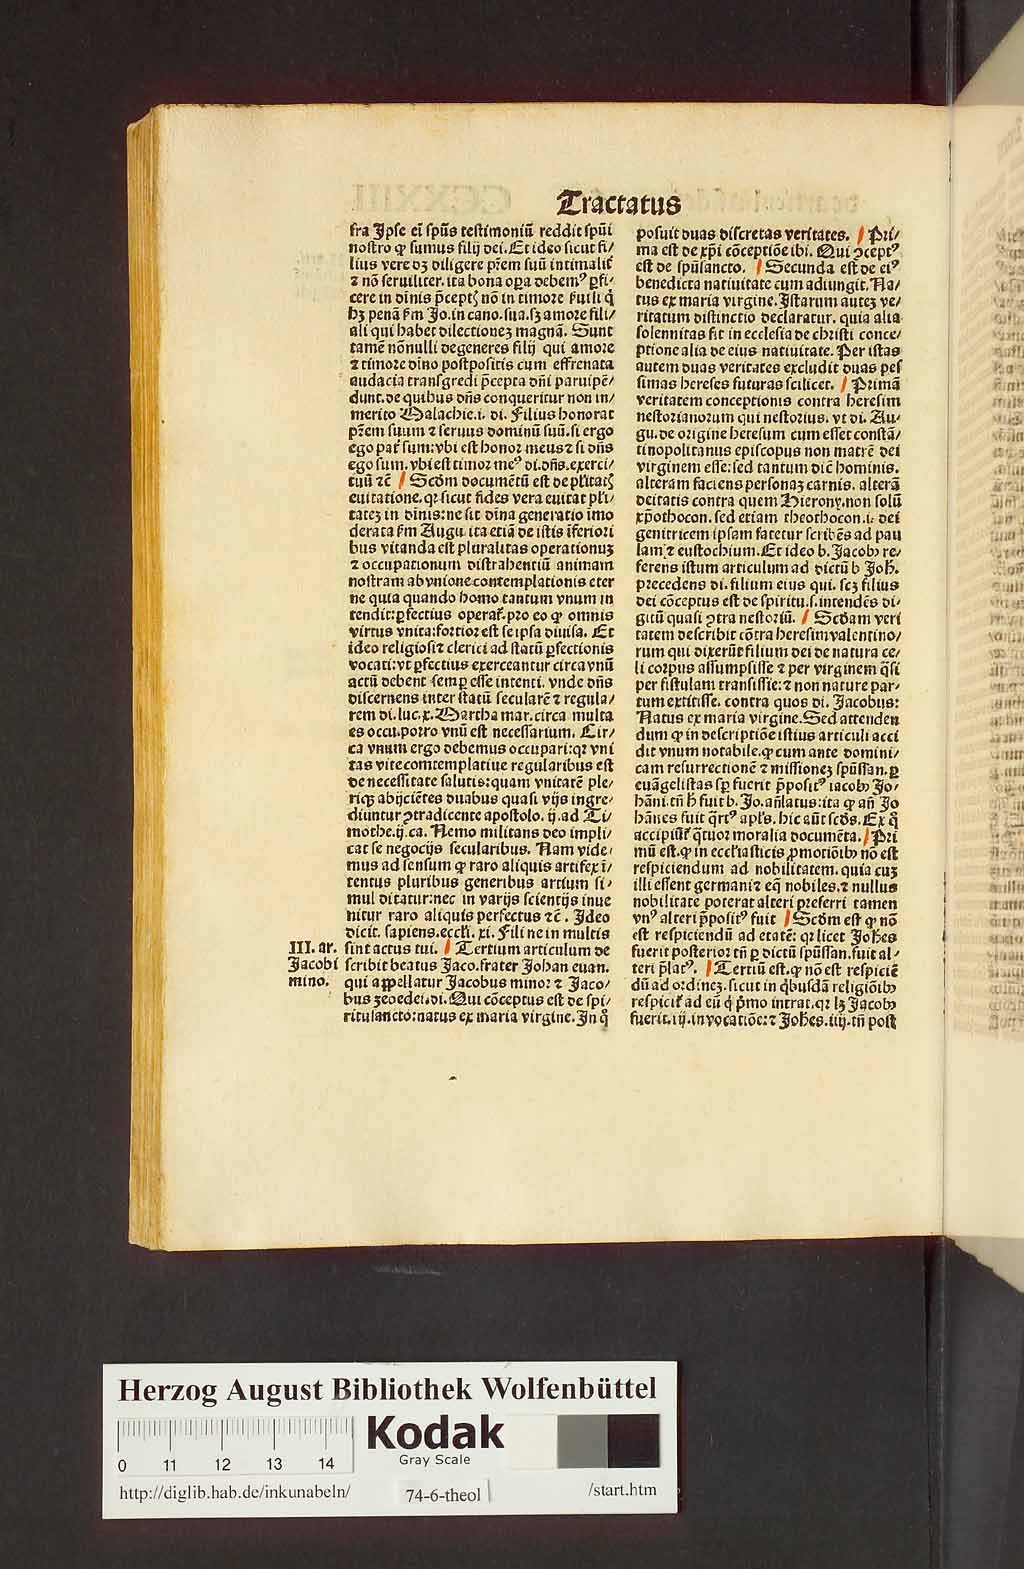 Tractatus
fra Ipse eĩ spũs testimoniũ reddit spũi
nostro ꝙ sumus filij dei. Et ideo sicut fi/
lius vere dꝫ diligere p̃rem suũ intimalit̃
⁊ nõ seruiliter. ita bona oꝑa debemꝰ ꝑfi/
cere in dinis p̃ceptꝭ nõ in timore
hꝫ penã Jo. in cano. sua. sꝫ amore fili/
ali qui habet dilectioneꝫ magnã. Sunt
tamẽ nõnulli degeneres filij qui amore
⁊ timore dĩno postpositis cum effrenata
audacia transgredi p̃cepta dñi paruipẽ/
dunt. de quibus dñs conqueritur non in/
merito Malachie. i. di. Filius honorat
p̃rem suum ⁊ seruus dominũ suũ. si ergo
ego pat̃ sum: vbi est honor meus ⁊ si dñs
ego sum. vbi est timor meꝰ di. dñs. exerci/
tuũ ⁊c̃ Scd̃m documẽtũ est de
euitatione. qꝛ sicut fides vera euitat
tateꝫ in dĩnis: ne sit dĩna generatio imo
derata Augu. ita etiã de istis ĩferiori
bus vitanda est pluralitas operationuꝫ
⁊ occupationum distrahentiũ animam
nostram ab vnione contemplationis eter
ne quia quando homo tantum vnum in
tendit: ꝑfectius operat̃. pro eo ꝙ omnis
virtus vnita: fortior est seipsa diuisa. Et
ideo religiosi ⁊ clerici ad statũ ꝑfectionis
vocati: vt ꝑfectius exerceantur circa vnũ
actũ debent semꝑ esse intenti. vnde dñs
discernens inter statũ secularẽ ⁊ regula/
rem di. luc. x. Martha mar. circa multa
es occu. porro vnũ est necessarium. Cir/
ca vnum ergo debemus occupari: qꝛ vni
tas vite comtemplatiue regularibus est
de necessitate salutis: quam vnitatẽ ple/
riqꝫ abijciẽtes duabus quasi vijs ingre/
diuntur ꝯtradicente apostolo. ij. ad Ti/
mothe. ij. ca. Nemo militans deo impli/
cat se negocijs secularibus. Nam vide/
mus ad sensum ꝙ raro aliquis artifex ĩ/
tentus pluribus generibus artium si/
mul ditatur: nec in varijs scientijs inue
nitur raro aliquis perfectus ⁊c̃. Ideo
dicit. sapiens. eccli. xi. Fili ne in multis
III. ar. sint actus tui. Tertium articulum de
Jacobi scribit beatus Jaco. frater Johan euan.
mino. qui appellatur Jacobus minor ⁊ Jaco/
bus zebedei. di. Qui cõceptus est de spi/
ritusancto: natus ex maria virgine. In q̃
posuit duas discretas veritates. Pri/
ma est de xp̃i cõceptiõe ibi. Qui ꝯceptꝰ
est de spũsancto. Secunda est de eiꝰ
benedicta natiuitate cum adiungit. Na/
tus ex maria virgine. Istarum auteꝫ ve/
ritatum distinctio declaratur. quia alia
solennitas fit in ecclesia de christi conce/
ptione alia de eius natiuitate. Per istas
autem duas veritates excludit duas pes
simas hereses futuras scilicet. Primã
veritatem conceptionis contra heresim
nestorianorum qui nestorius. vt di. Au/
gu. de origine heresum cum esset constã/
tinopolitanus episcopus non matrẽ dei
virginem esse: sed tantum diẽ hominis.
alteram faciens personaꝫ carnis. alterã
deitatis contra quem Hierony. non solũ
xp̃othocon. sed etiam theothocon. i. dei
genitricem ipsam fatetur scribẽs ad pau
lam ⁊ eustochium. Et ideo b. Jacobꝰ re/
ferens istum articulum ad dictũ b Joh̃.
precedens di. filium eius qui. scꝫ filius
dei cõceptus est de spiritu. s. intendẽs di/
gitũ quasi ꝯtra nestoriũ. Scd̃am veri
tatem describit cõtra heresim valentino/
rum qui dixerũt filium dei de natura ce/
li corpus assumpsisse ⁊ per virginem q̃si
per fistulam transissie: ⁊ non nature par/
tum extitisse. contra quos di. Jacobus:
Natus ex maria virgine. Sed attenden
dum ꝙ in descriptiõe istius articuli acci
dit vnum notabile. ꝙ cum ante domini/
cam resurrectionẽ ⁊ missioneꝫ spũssan. ꝑ
euãgelistas sp̃ fuerit p̃positꝰ iacobꝰ Jo/
hãni. tñ h̃ fuit b. Jo. añlatus: ita ꝙ añ Jo
hãnes fuit q̃rtꝰ apl̃s. hic aũt scd̃s. Ex q̃
accipiũt̃ q̃tuor moralia documẽta. Pri
mũ est. ꝙ in eccl̃iasticis ꝓmotiõibꝰ nõ est
respiciendum ad nobilitatem. quia cuꝫ
illi essent germani ⁊ eq̃ nobiles. ⁊ nullus
nobilitate poterat alteri preferri tamen
vnꝰ alteri p̃positꝰ fuit Scd̃m est ꝙ nõ
est respiciendũ ad etatẽ: qꝛ licet Joh̃es
fuerit posterior tñ ꝑ dictũ spũssan. fuit al/
teri p̃latꝰ. Tertiũ est. ꝙ nõ est respiciẽ
dũ ad ordineꝫ. sicut in q̃busdã religiõibꝰ
respicit̃ ad eũ q̃ p̃mo intrat. qꝛ lꝫ Jacobꝰ
fuerit. iij. in vocatiõe: ⁊ Joh̃es. iiij. tñ post
Herzog August Bibliothek Wolfenbüttel
Kodak
Gray Scale
0 11 12 13 14
http://diglib.hab.de/inkunabeln/ 74-6-theol /start.htm